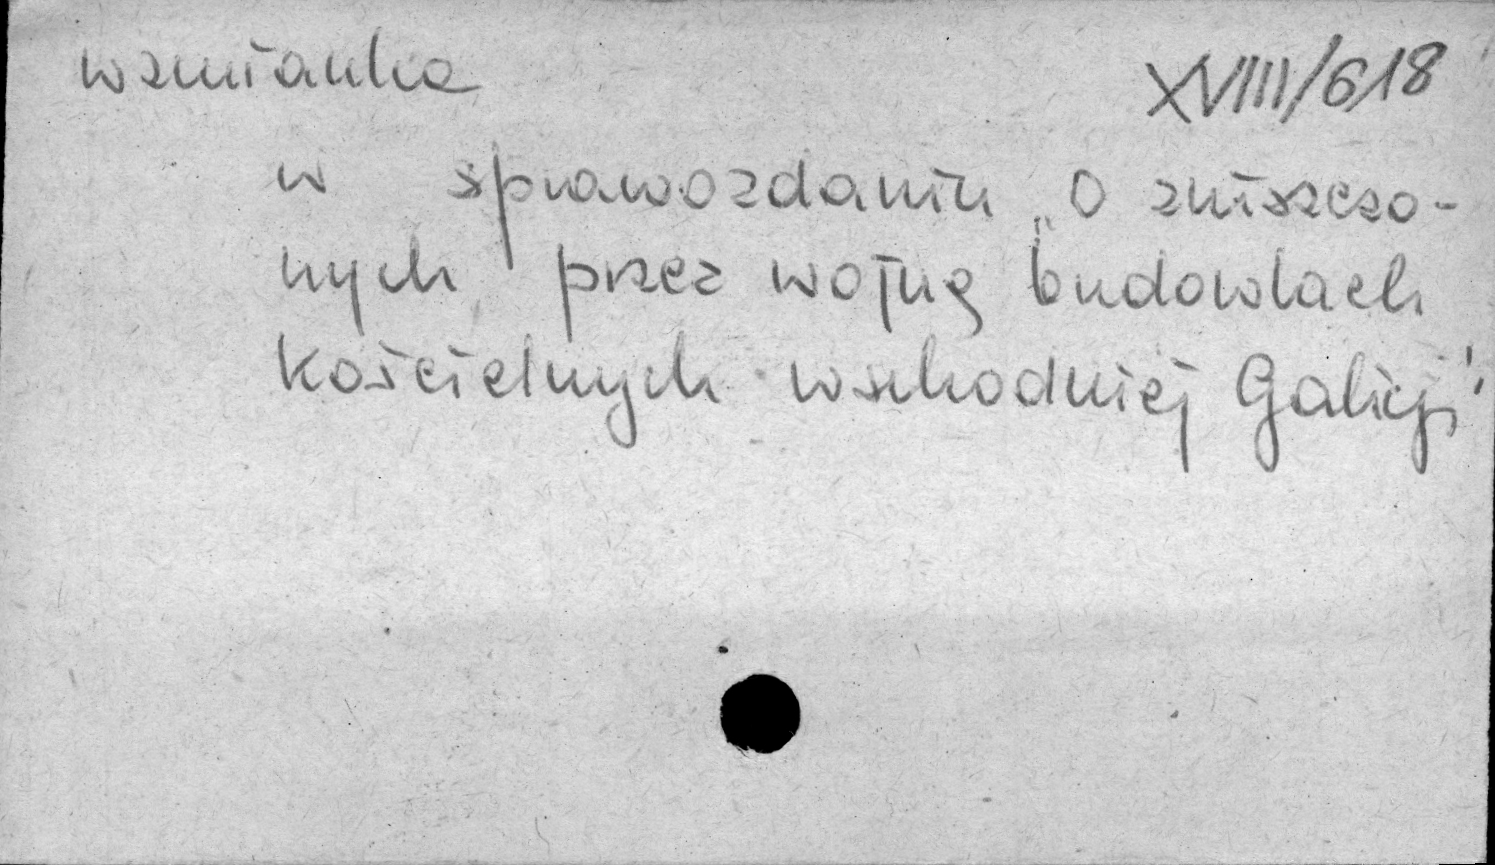 wzmianka XVIII/618
w sprawozdaniu „O zniszczo-
nych przez wojnę budowlach
kościelnych wschodniej Galicji"